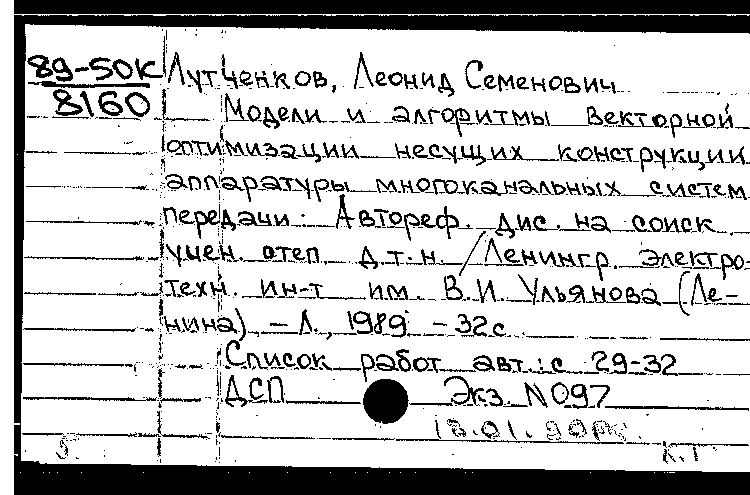 89-50К
8160
Лутченков, Леонид Семенович
Модели и алгоритмы векторной
оптимизации несущих конструкции
аппаратуры многоканальных систем
передачи: Автореф. дис. на соиск.
учен. степ. д.т.н. / Ленингр. электро-
техн. ин-т им. В.И. Ульянова (Ле-
нина), - Л., 1989 - 32с.
Список работ авт.: с 29-32
ДСП Экз. N097
18.01.90
5. К.Т